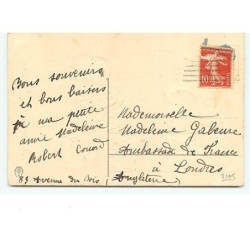 Bons souvenirs
et bons baisers
à ma petite
amie Madeleine
Robert
83 Avenue du Bois
10
Mademoiselle
Madeleine
Ambassade de France
à Londres
Angleterre